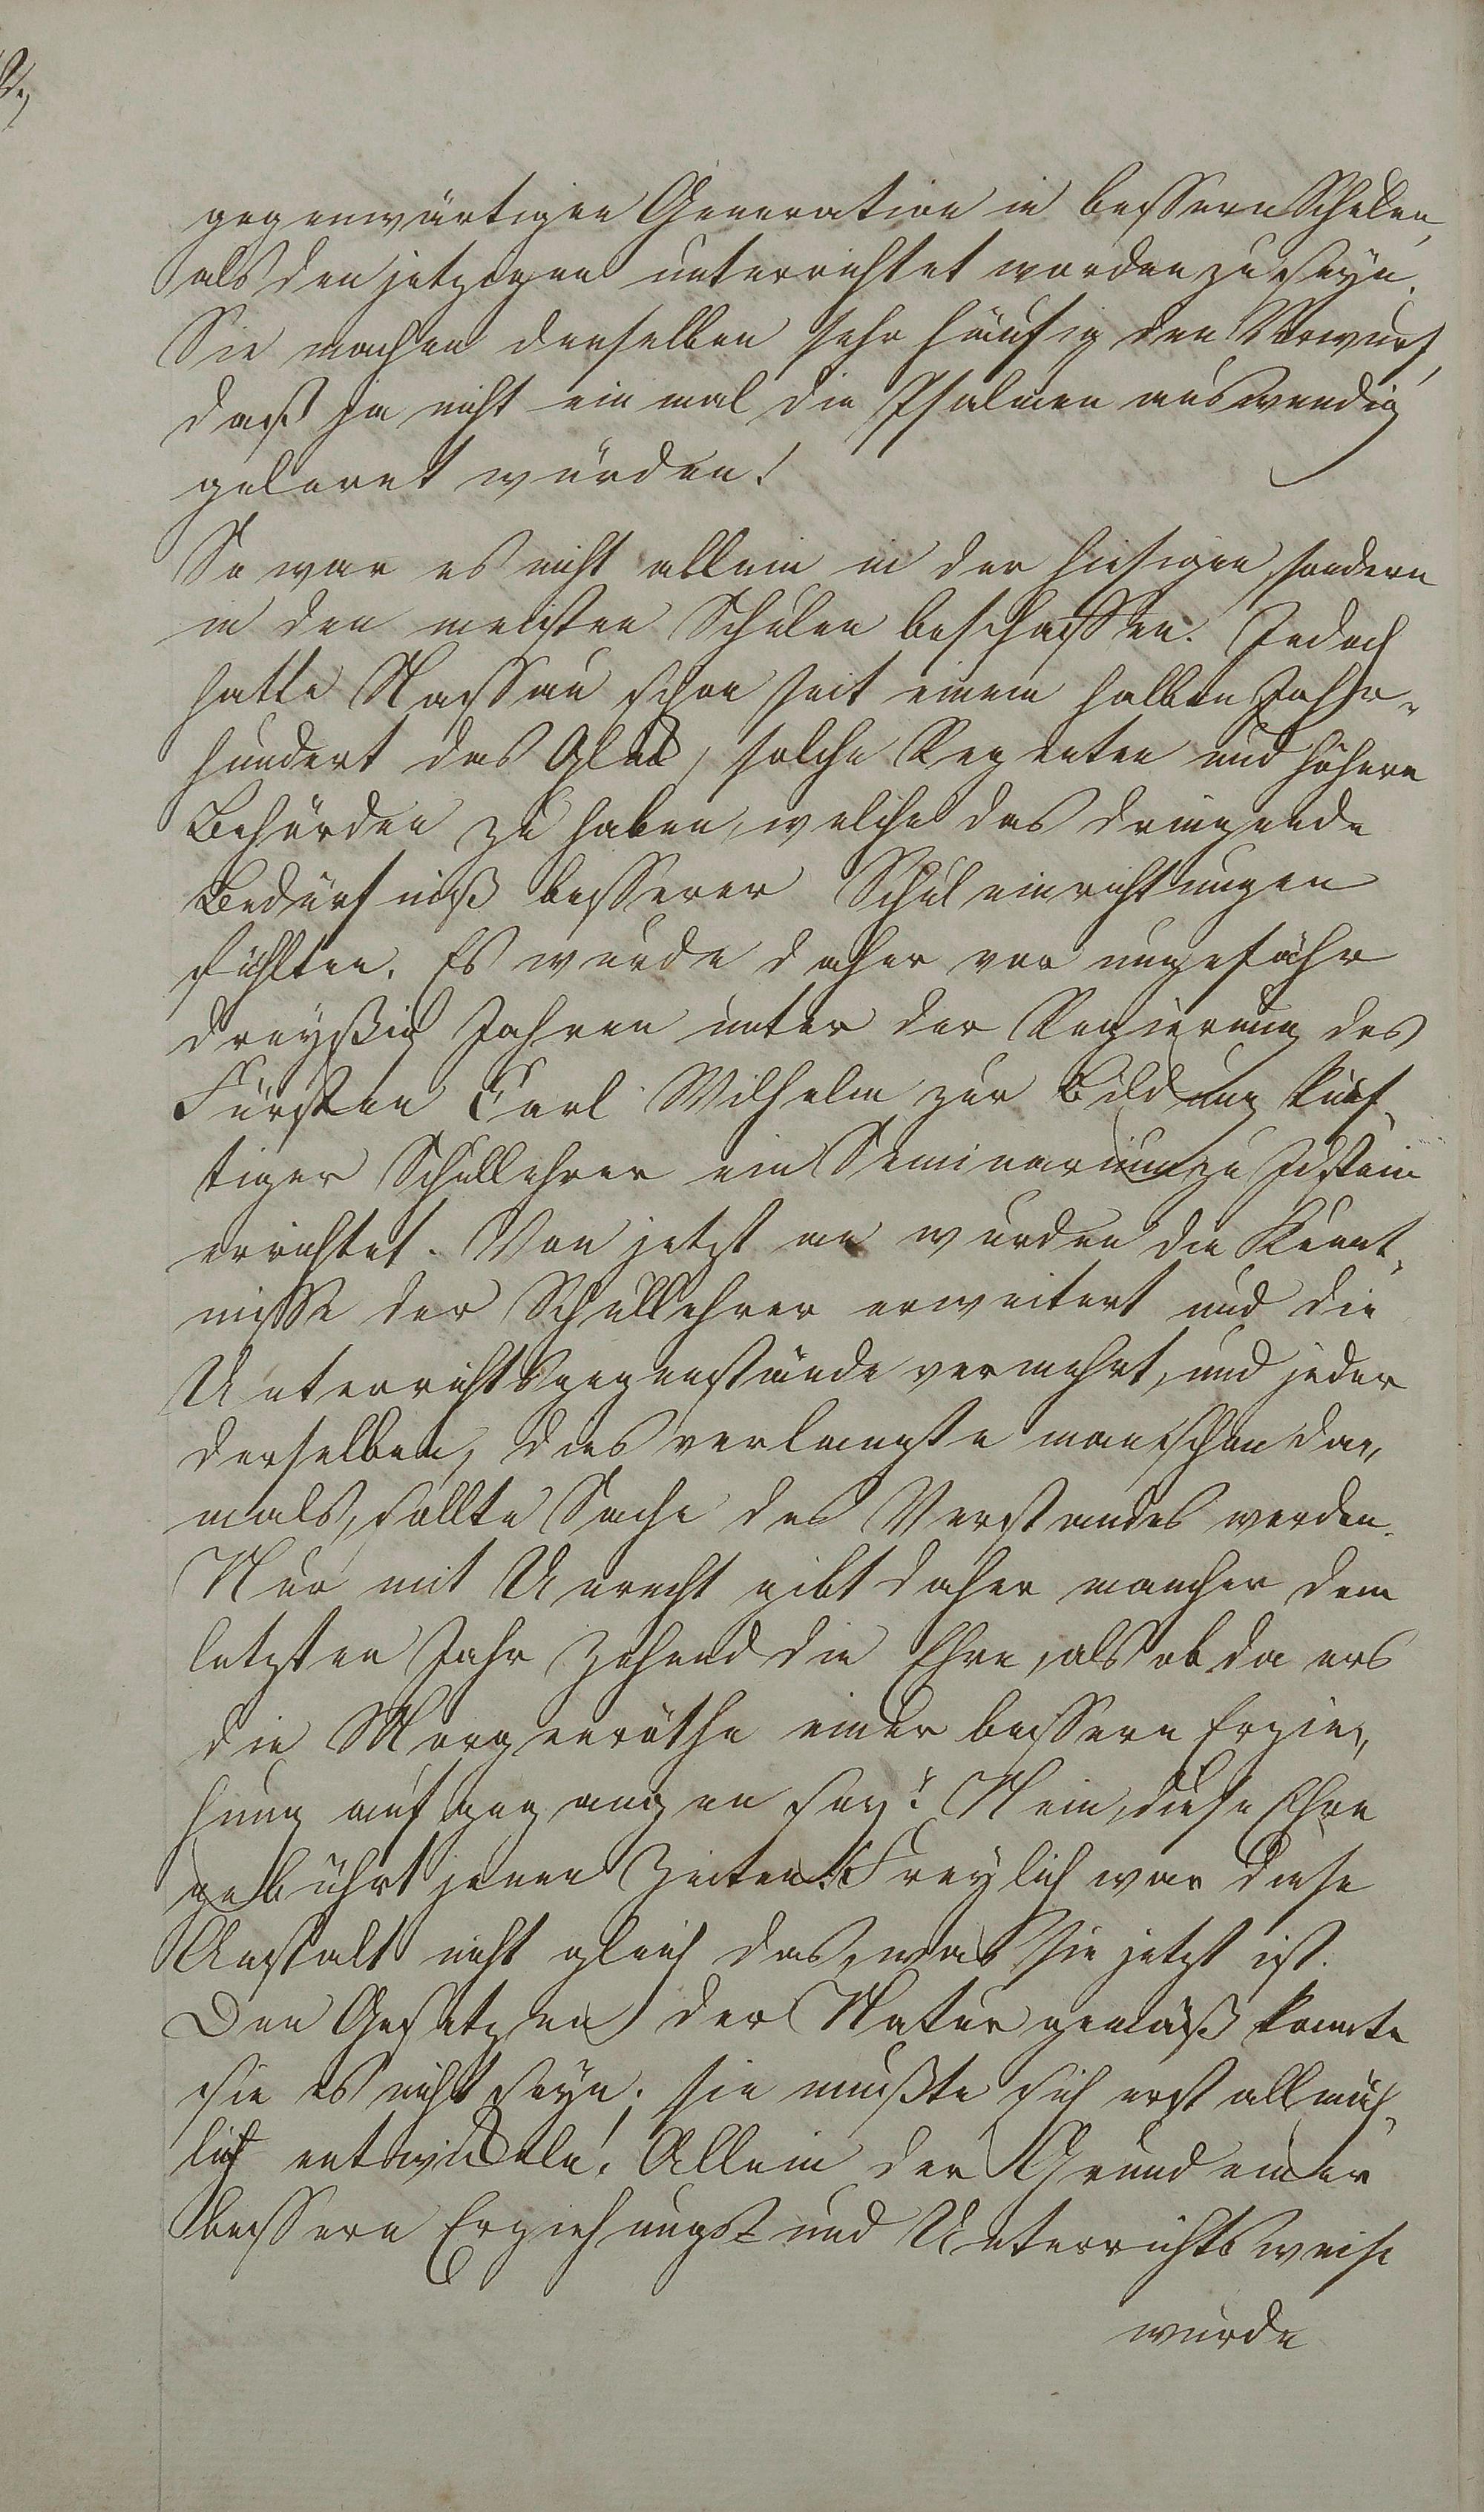 gegenwärtigen Generation in bessern Schulen,
als den jetzigen unterrichtet worden zu seyn.
Sie machen denselben sehr häufig den Vorwurf,
daß ja nicht ein mal die Psalmen auswendig
gelernt würden!
So war es nicht allein in der hiesigen, sondern
in den meisten Schulen beschaffen. Jedoch
hatte Nassau schon seit einem halben Jahr-
hundert das Glük, solche Regenten und höhere
Behörden zu haben, welche das dringende
Bedürfniß besserer Schuleinrichtungen
fühlten. Es wurde daher vor ungefähr
dreyßig Jahren unter der Regierung des
Fürsten Carl Wilhelm zur Bildung künf-
tiger Schullehrer ein Seminarium zu Idstein
errichtet. Von jetzt an wurden die Kennt-
nisse der Schullehrer erweitert und die
Unterrichtsgegenstände vermehrt, und jeder
derselben, dies verlangte man schon da-
mals, sollte Sache des Verstandes werden.
Nur mit Unrecht gibt daher mancher dem
letzten Jahr zehend die Ehre, als ob da ers
die Morgenröthe einer bessern Erzie-
hung aufgegangen sey: Nein, diese Ehre
gebührt jenen Zeiten! Freylich war diese
Anstalt nicht gleich das, was sie jetzt ist.
Den Gesetzen der Natur gemäß konnte
sie es nicht seyn; sie mußte sich erst allmäh-
lich entwickeln. Allein der Grund einer
bessern Erziehungs- und Unterrichtsweise
wurde